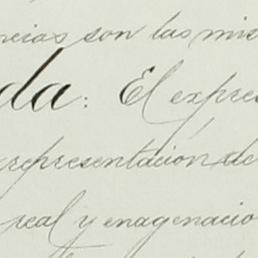 ncias son las mis
da: El expres
representación de
real y enagenacio